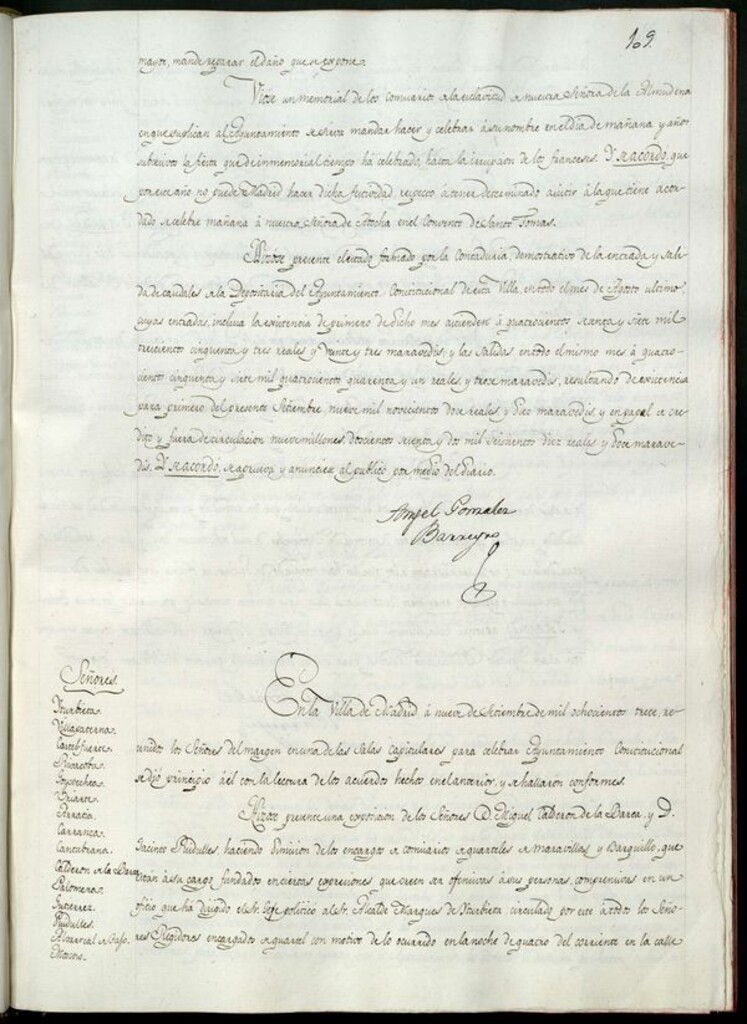 109.
mayor, mande reparar el daño que se expone.
Viose un memorial de los comisarios de la esclavitud de nuestra Señora de la Almudena
en que suplican al Ayuntamiento se sirva mandar hacer y celebrar á su nombre en el dia de mañana y años
subcesivos la fiesta que de inmemorial tiempo há celebrado, hasta la irrupcion de los franceses. Y se acordó, que
por este año no puede Madrid hacer dicha festividad, respecto á tener determinado asistir á la que tiene acor-
dado se celebre mañana á nuestra Señora de Atocha en el Convento de Santo Tomas.
Hizose presente el estado formado por la Contaduría, demostrativo de la entrada y sali-
da de caudales de la Depositaria del Ayuntamiento Constitucional de esta Villa, en todo el mes de Agosto ultimo,
cuyas entradas, inclusa la existencia de primero de dicho mes ascienden á quatrocientos sesenta y siete mil
trescientos cinquenta y tres reales y veinte y tres maravedis, y las salidas en todo el mismo mes á quatro-
cientos cinquenta y siete mil quatrocientos quarenta y un reales, y trece maravedis, resultando de existencia
para primero del presente Setiembre, nueve mil novecientos doce reales, y diez maravedis, y en papel de cre-
dito y fuera de circulacion nueve millones, doscientos setenta y dos mil seiscientos diez reales y doce marave-
dis. Y se acordó, se aprueva y anuncie al publico por medio del Diario.
Angel Gonzalez
Barreyro
Señores.
Yturbieta.
Villapaterna.
Castelfuerte.
Goycoechea.
Uriarte.
Arratia.
Carranza.
Cantabrana.
Calderon de la Barca
Palomera.
Gutierrez.
Puidulles.
Moscoso.
En la Villa de Madrid á nueve de Setiembre de mil ochocientos trece, re-
unidos los Señores del margen en una de las Salas Capitulares para celebrar Ayuntamiento Constitucional
se dió principio á él con la lectura de los acuerdos hechos en el anterior, y se hallaron conformes.
Hizose presente una exposicion de los Señores D. Miguel Calderon de la Barca, y D.
Jacinto Puidulles, haciendo dimision de los encargos de comisarios de quarteles de Maravillas y Barquillo, que
están á su cargo fundados en ciertas expresiones que creen ser ofensivas á sus personas, comprensivas en un
oficio que há dirigido el Sr. Gefe politico al Sr. Alcalde Marques de Yturbieta circulado por este á todos los Seño-
res Regidores encargados de quartel con motivo de lo ocurrido en la noche de quatro del corriente en la calle